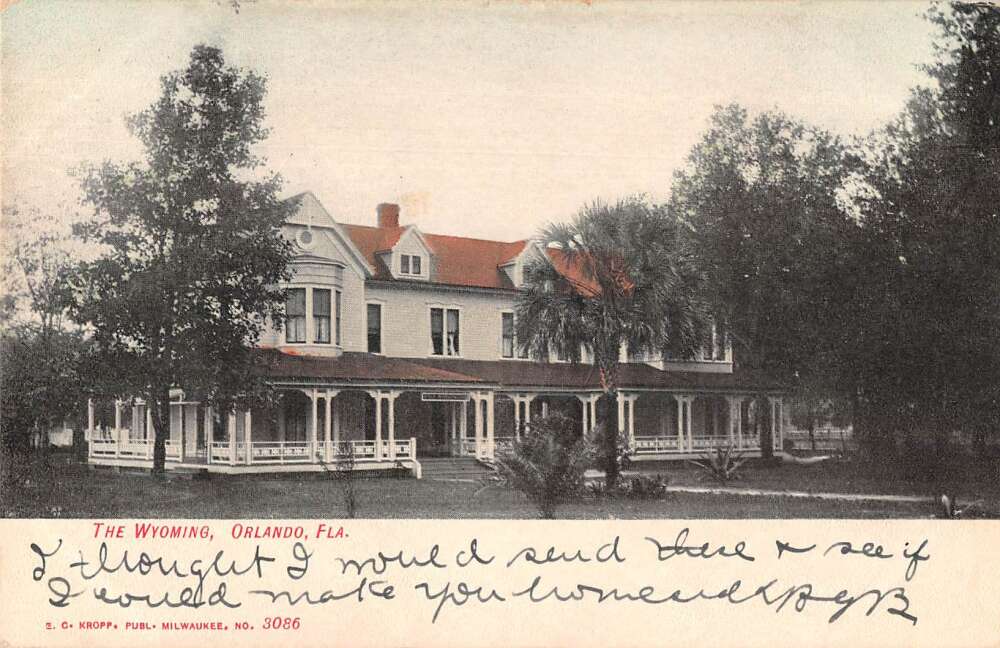 THE WYOMING, ORLANDO, FLA.
I thought I would send these & see if
I could make you homesick
E. C. KROPP. PUBL. MILWAUKEE. NO. 3086